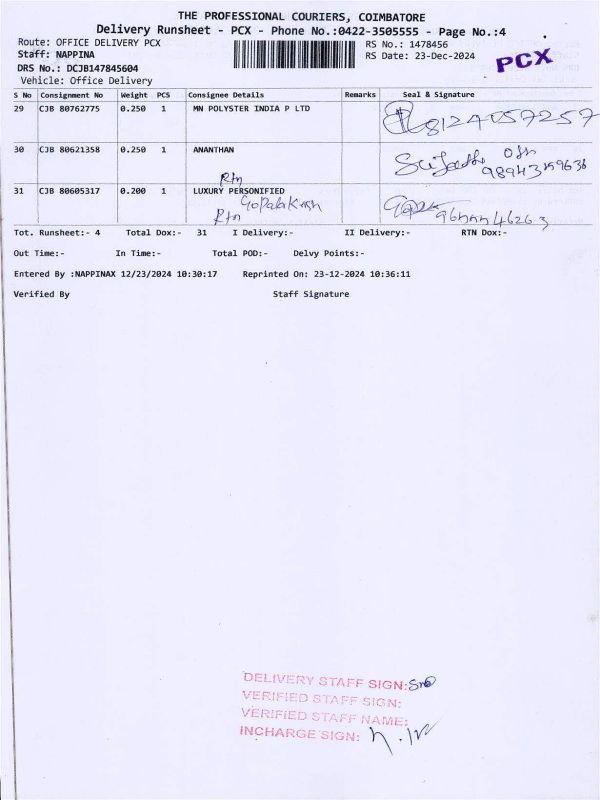 THE PROFESSIONAL COURIERS, COIMBATORE
Delivery Runsheet - PCX - Phone No.:0422-3505555 - Page No.:4
Route: OFFICE DELIVERY PCX RS No.: 1478456
Staff: NAPPINA RS Date: 23-Dec-2024 PCX
DRS No.: DCJB147845604
Vehicle: Office Delivery
S No Consignment No Weight PCS Consignee Details Remarks Seal & Signature
29 CJB 80762775 0.250 1 MN POLYSTER INDIA P LTD 8124057257
30 CJB 80621358 0.250 1 ANANTHAN
Rtn
31 CJB 80605317 0.200 1 LUXURY PERSONIFIED
Rtn
Tot. Runsheet:- 4 Total Dox:- 31 I Delivery:- II Delivery:- RTN Dox:-
Out Time:- In Time:- Total POD:- Delvy Points:-
Entered By :NAPPINAX 12/23/2024 10:30:17 Reprinted On: 23-12-2024 10:36:11
Verified By Staff Signature
DELIVERY STAFF SIGN:
VERIFIED STAFF SIGN:
VERIFIED STAFF NAME:
INCHARGE SIGN: